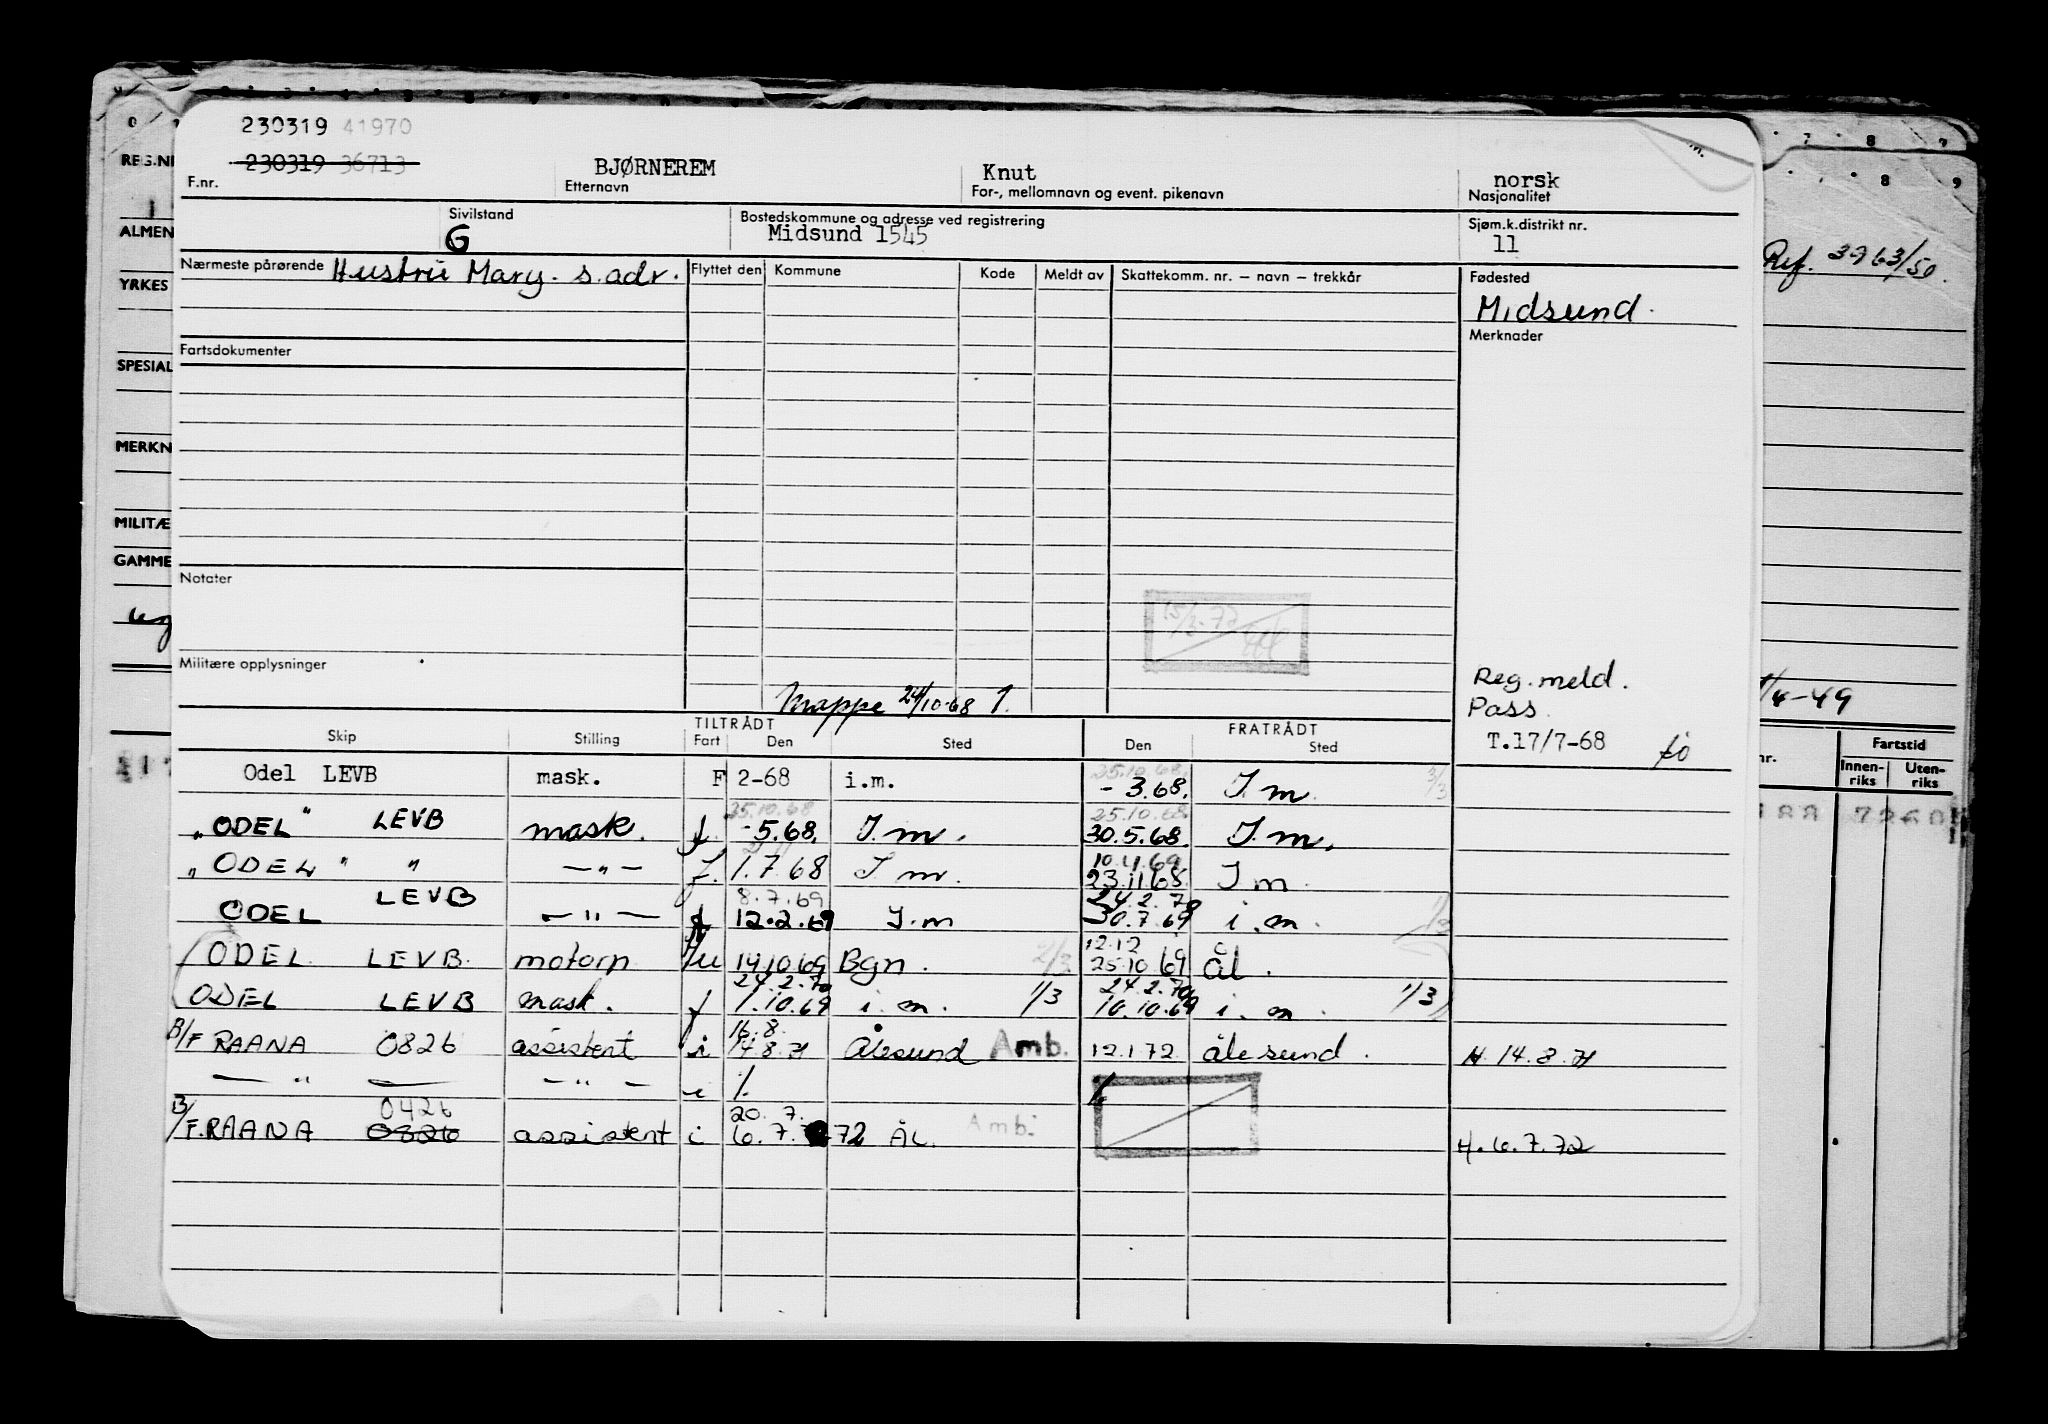 230319 41970
230319 36713
F.nr.
BJØRNEREM
Etternavn
Knut
For-, mellomnavn og event. pikenavn
norsk
Nasjonalitet
Sivilstand
G
Bostedskommune og adresse ved registrering
Midsund 1545
Sjøm.k.distrikt nr.
11
Nærmeste pårørende Hustru Mary. s. adr.
Flyttet den Kommune Kode Meldt av Skattekomm. nr. – navn – trekkår
Fødested
Midsund.
Merknader
Fartsdokumenter
Notater
Militære opplysninger
Mappe 24/10-68
Reg. meld.
Pass
T.17/7-68
TILTRÅDT FRATRÅDT
Skip Stilling Fart Den Sted Den Sted
25.10.68.
Odel LEVB mask. F 2-68 i.m. - 3.68. I.m. 3/3
25.10.68 25.10.68
"ODEL" LEVB mask. f. -5.68. I.m. 30.5.68. I.m.
10.11.69
"ODEL" " —"— f. 1.7.68 I m. 23.11.68. I m.
8.7.69 24.2.70
ODEL LEVB —"— f 12.2.69 I.m 30.7.69 i.m.
12.12
ODEL LEVB. motorp /u 14.10.69 Bgn. 2/3 25.10.69 ål.
24.2.70 24.2.70
ODEL LEVB mask. f 1.10.69 i.m. 1/3 10.10.69 i.m. 1/3
16.8.
B/F RAANA 0826 assistent i 14.8.71 Ålesund Amb. 12.1.72 ålesund. H. 14.8.71
—"— —"— i /.
0426 20.7.
B/F. RAANA 0826 assistent i 6.7.72 ÅL. Amb. H. 6.7.72
REG.NR
ALMEN
YRKES
SPESIAL
MERKN
MILITÆ
GAMME
7 8
8 9
Ref. 3963/50.
1/4-49
nr. Fartstid
Innen-riks Uten-riks